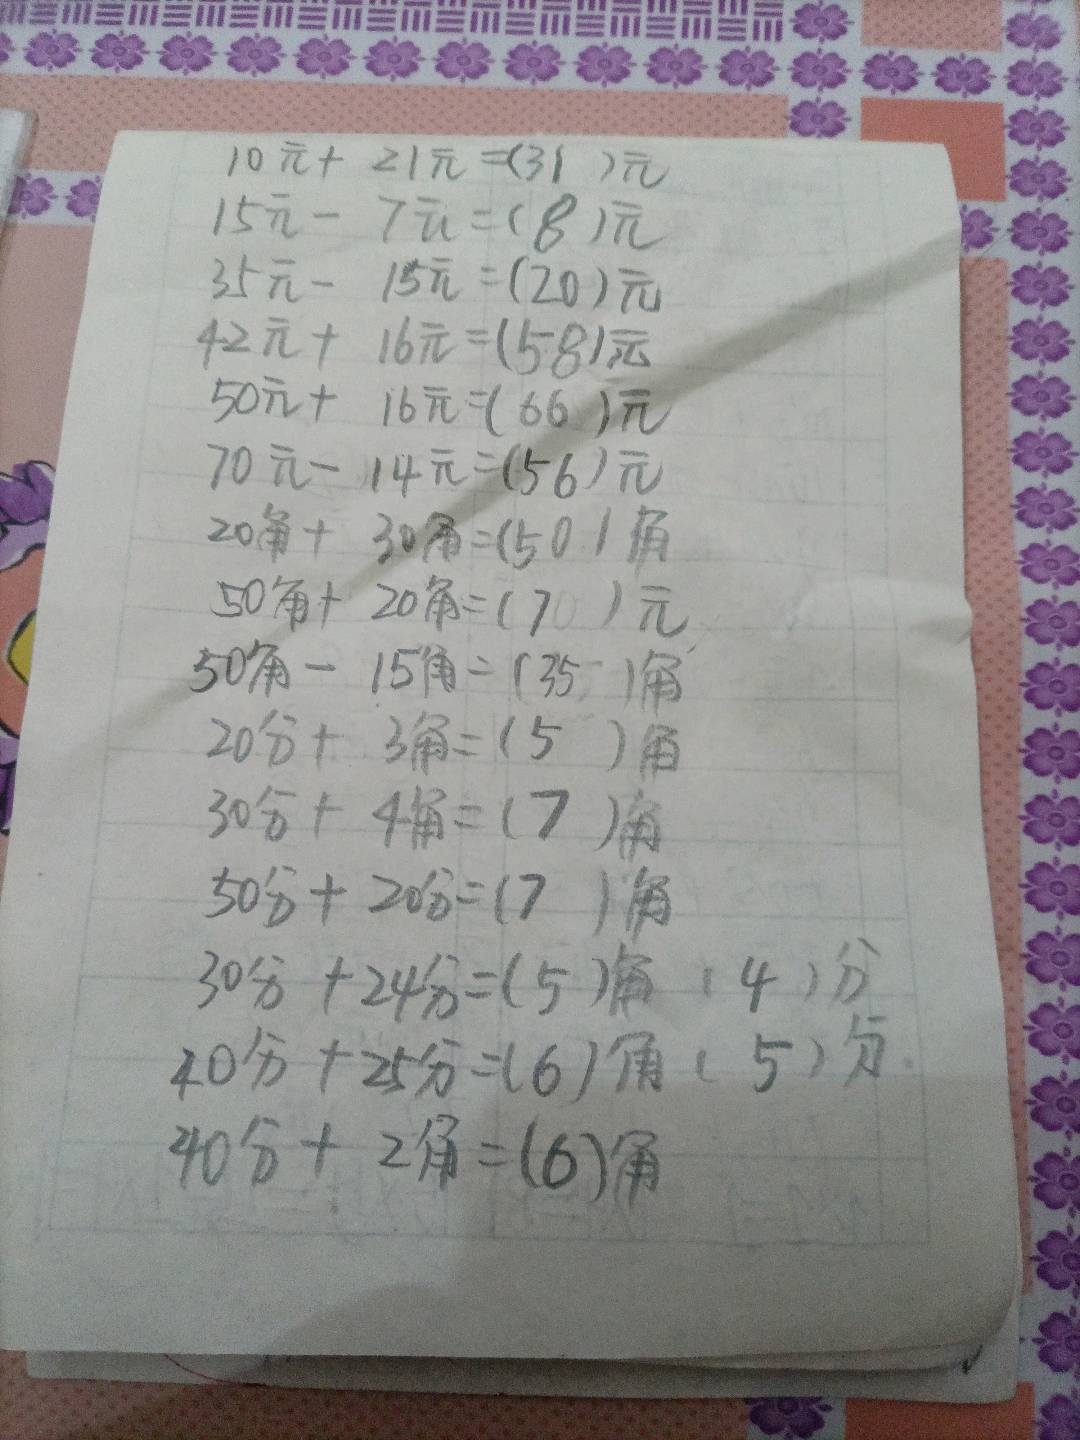 10元+ 21元=(31 )元
15元- 7元=(8)元
35元- 15元=(20)元
42元+ 16元=(58)元
50元+ 16元=(66 )元
70元- 14元=(56)元
20角+ 30角=(50 )角
50角+ 20角=(7 )元
50角- 15角=(35 )角
20分+ 3角=(5 )角
30分+ 4角=(7 )角
50分+ 20分=(7 )角
30分+24分=(5)角(4)分
40分+25分=(6)角(5)分
40分+ 2角=(6)角